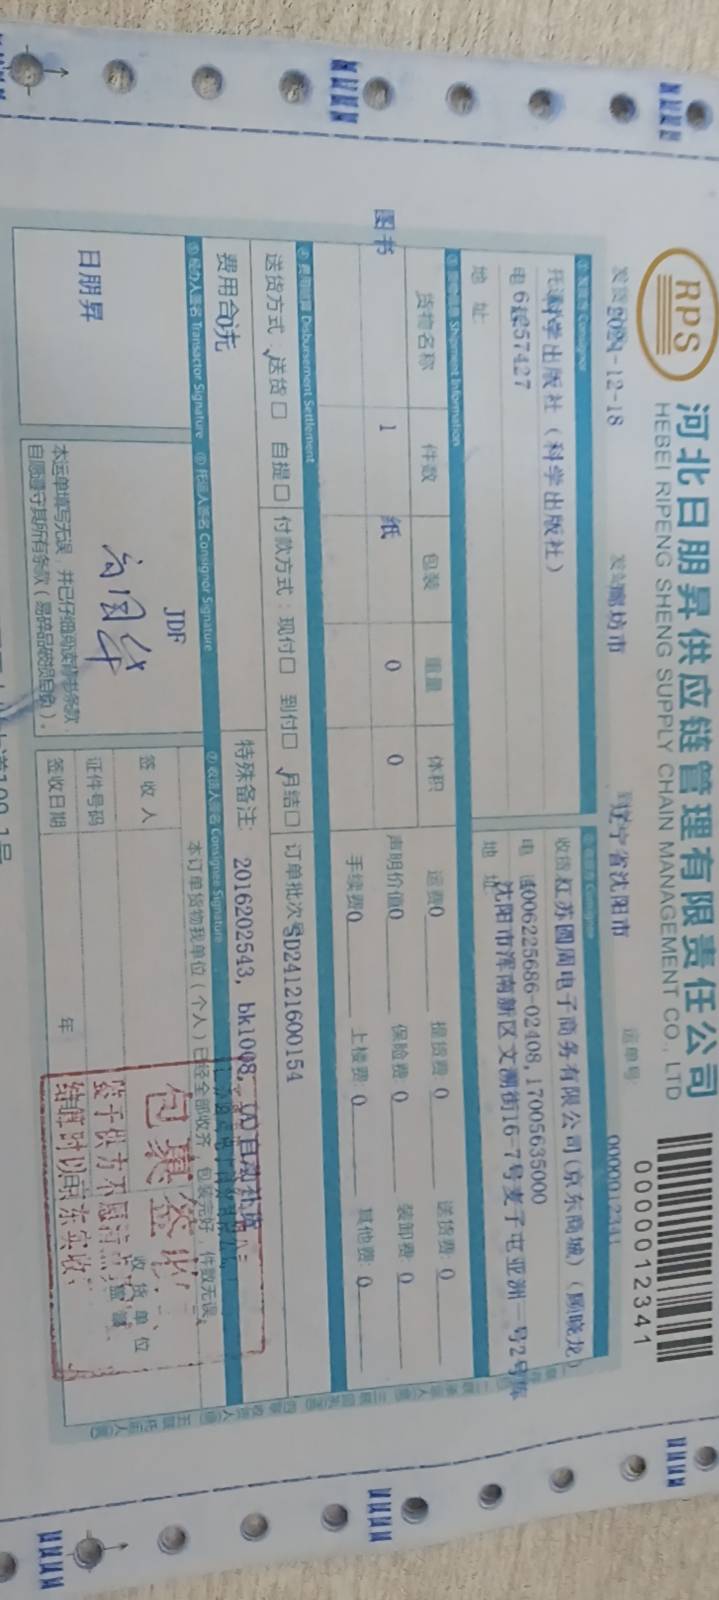 RPS
河北日朋昇供应链管理有限责任公司
HEBEI RIPENG SHENG SUPPLY CHAIN MANAGEMENT CO., LTD
0000012341
发货 2024-12-18 发站 廊坊市 到 辽宁省沈阳市 运单号 0000012341
① 发货方 Consignor
托运 科学出版社（科学出版社）
电 57427
地 址
收货 江苏圆周电子商务有限公司(京东商城)（顾晓龙）
电 4006225686-02408,17005635000
地 址 沈阳市浑南新区文溯街16-7号麦子屯亚洲一号2号库
Shipment Information
货物名称 件数 包装 重量 体积
图书 1 纸 0 0
运费 0 提货费: 0 送货费: 0
声明价值 0 保险费: 0 装卸费: 0
手续费 0 上楼费: 0 其他费: 0
④ 费用结算 Disbursement Settlement
送货方式: √送货□ 自提□ 付款方式: 现付□ 到付□ √月结□ 订单批次号 SD24121600154
费用合 0元
特殊备注: 2016202543, bk1008,
⑤ 经办人签名 Transactor Signature ⑥ 托运人签名 Consignor Signature ⑦ 收货人签名 Consignee Signature
日朋昇
JDF
本运单填写无误，并已仔细阅读背书条款，
自愿遵守其所有条款（易碎品破损自负）。
本订单货物我单位（个人）已经全部收齐，包装完好，件数无误。
签 收 人
收货单位
证件号码
盖 章
签收日期 年
包裹签收